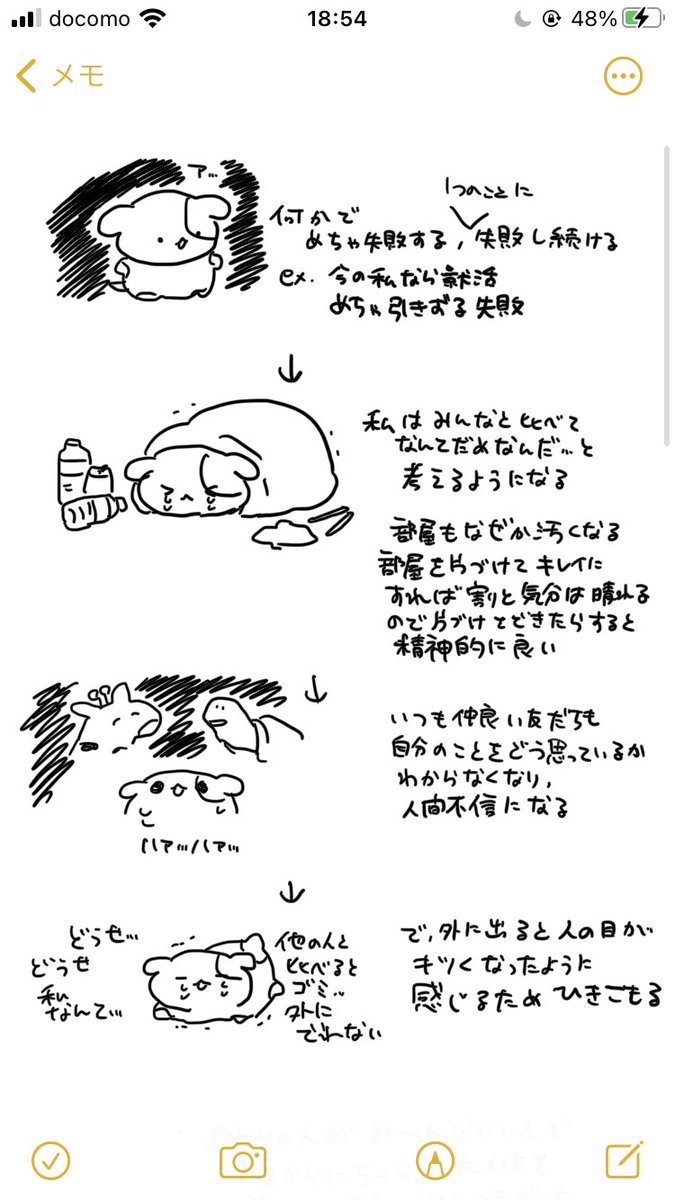 docomo
18:54
48%
メモ
ア…
何かで
めちゃ失敗する,
1つのことに
失敗し続ける
ex. 今の私なら就活
めちゃ引きずる失敗
↓
私はみんなと比べて
なんてだめなんだ…と
考えるようになる
部屋もなぜか汚くなる
部屋を片づけてキレイに
すれば割と気分は晴れる
ので片づけてできたらすると
精神的に良い
↓
いつも仲良い友だちも
自分のことをどう思っているか
わからなくなり,
人間不信になる
ハアッハアッ
↓
どうせ…
どうせ
私
なんて…
他の人と
比べると
ゴミ…
外に
でれない
で,外に出ると人の目が
キツくなったように
感じるためひきこもる